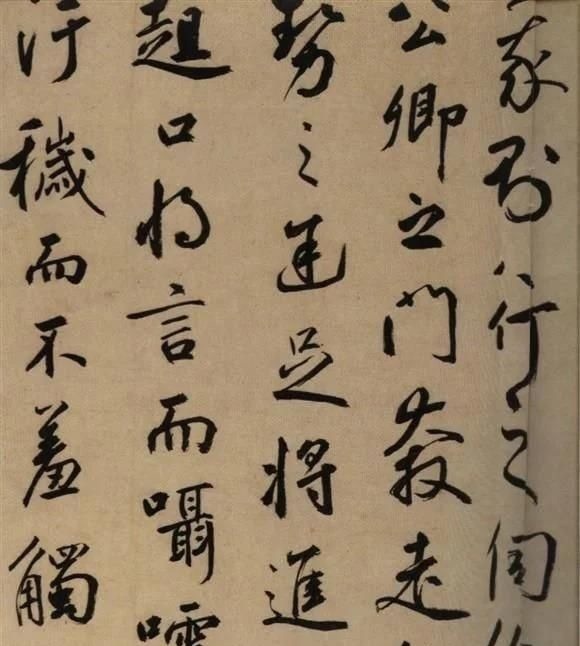 我則行之伺
公卿之門奔走
勢之途足將進
趄口將言而囁嚅
汙穢而不羞觸